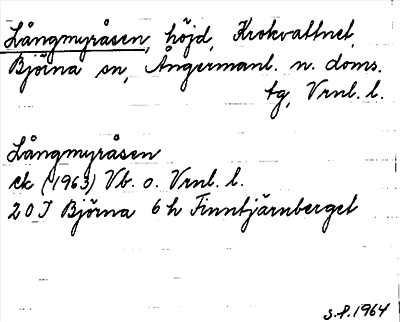 Långmyråsen, höjd, Krokvattnet,
Björna sn, Ångermanl. n. doms.
tg, Vrnl. l.
Långmyråsen
ek (1963) Vb. o. Vrnl. l.
20 J Björna 6 h Finntjärnberget
S.P. 1964